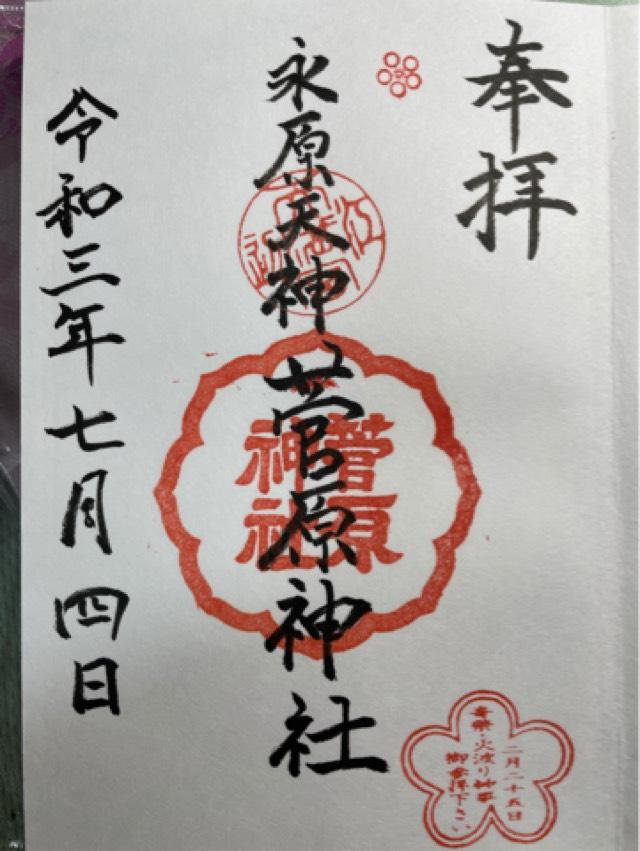 奉拝
永原天神
菅原神社
令和三年七月四日
菅原
神社
二月二十五日
火渡り神事
御参拝下さい